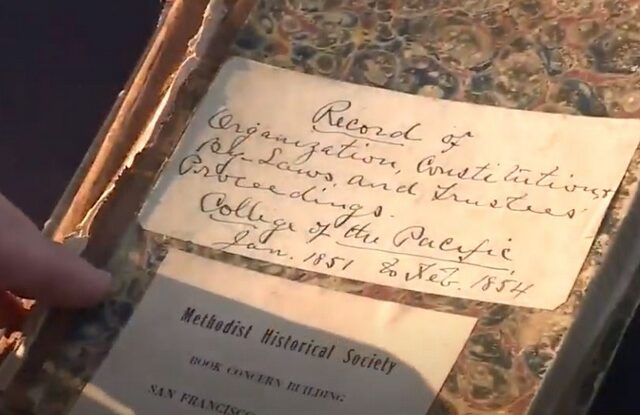 Record of
Organization, Constitution,
By-Laws, and Trustees'
Proceedings.
College of the Pacific
Jan. 1851 to Feb. 1854
Methodist Historical Society
BOOK CONCERN BUILDING
SAN FRANCISCO